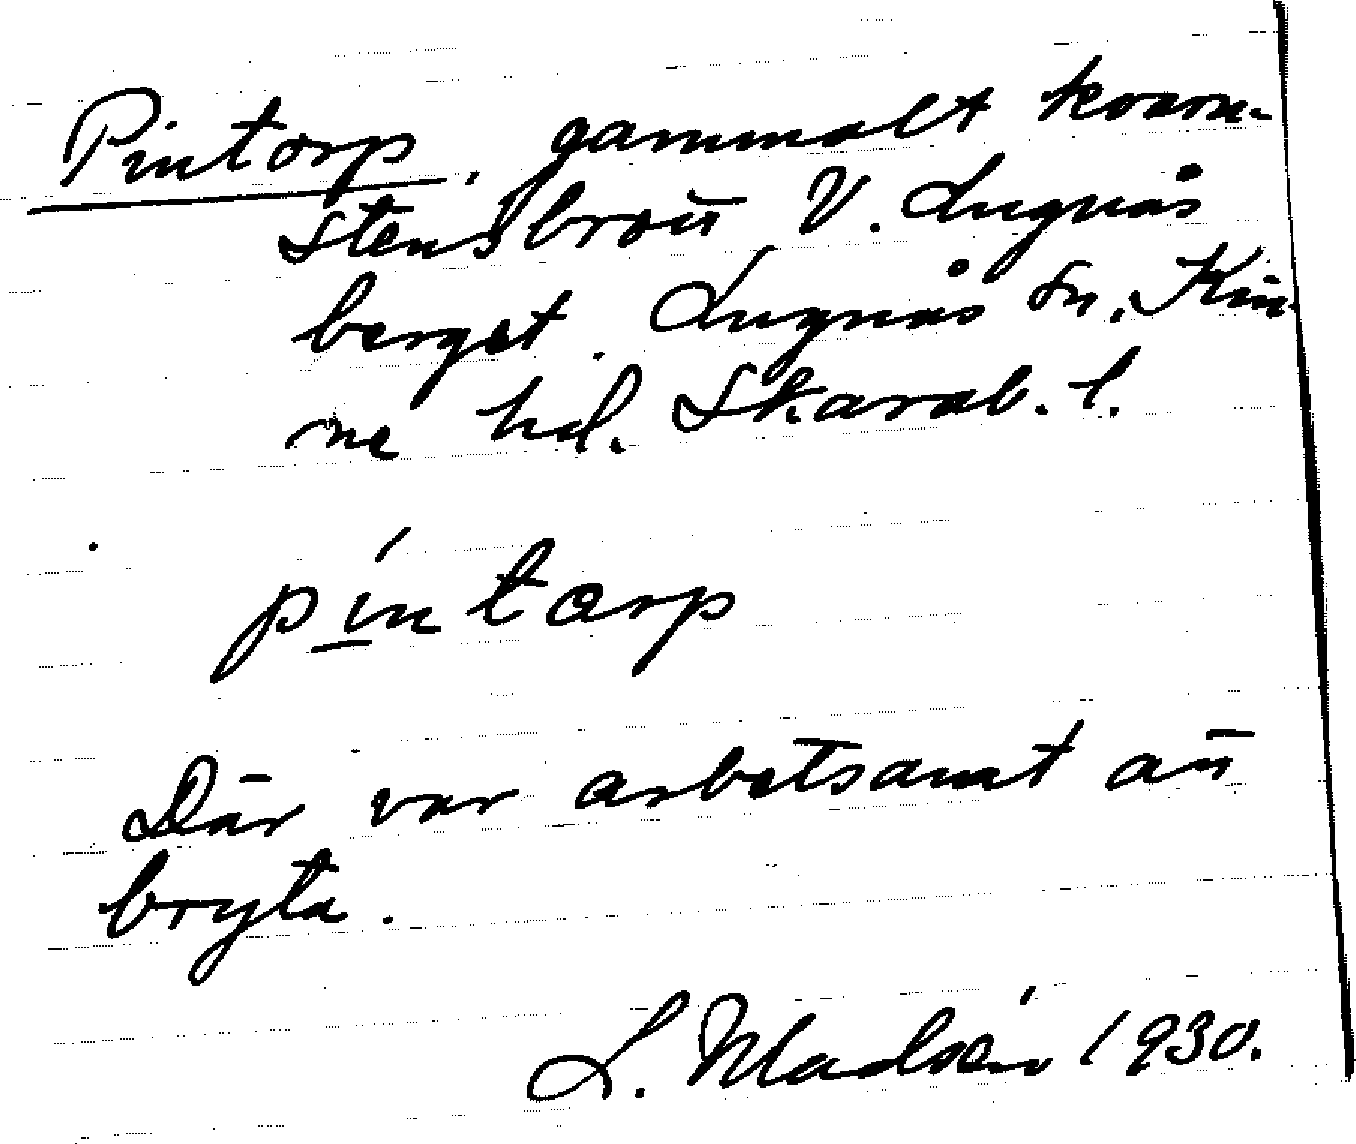 Pintorp, gammalt kvarn-
stensbrott V. Lugnås
berget. Lugnås sn, Kin
ne hd. Skarab. l.
píntorp
Där var arbetsamt att
bryta.
L. Madsén 1930.